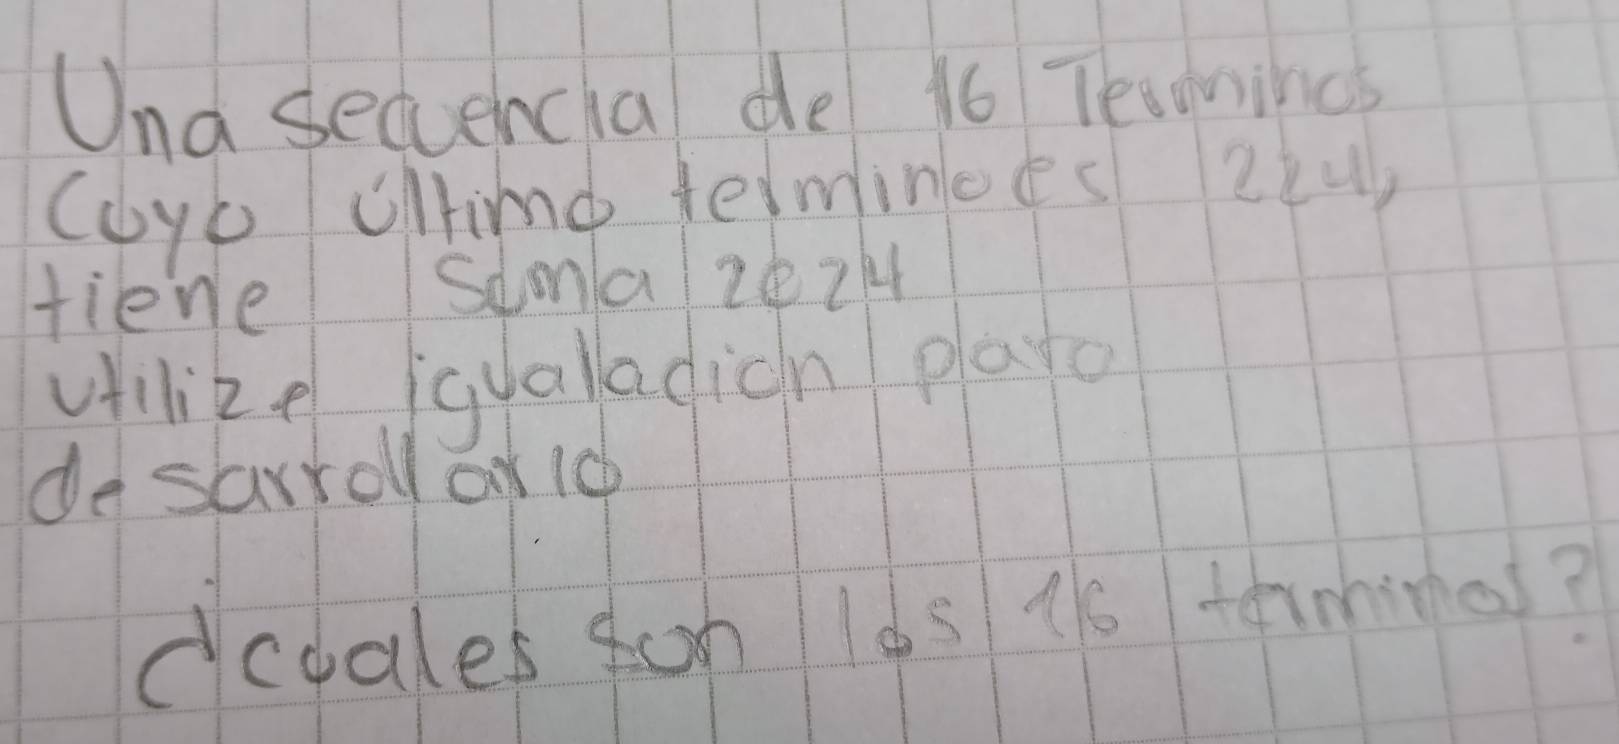 Una secuencia de 16 Terminos
Cuyo último termino es 224,
tiene Suma 2024
utilize igualadion para
desarrollarlo
¿cuales son los 16 terminos?